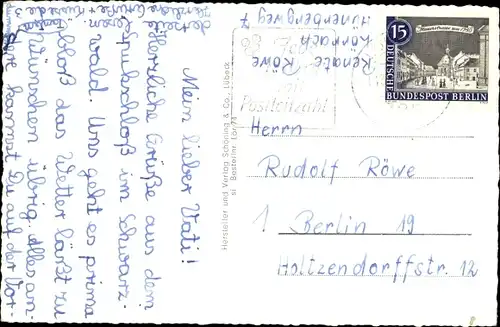 Mein lieber Vati!
Herzliche Grüße aus dem
Spukschloß im Schwarz-
wald. Uns geht es prima
bloß das Wetter läßt zu
Wünschen übrig. Alles an-
dere kannst Du auf der Vor-
Herzliche
Grüße +
Hersteller und Verlag Schöning & Co., Lübeck
Bestellnr Lör
Renate Röwe
Lörrach
Hünerbergweg 7
mit
Postleitzahl
15
DEUTSCHE
BUNDESPOST BERLIN
Herrn
Rudolf Röwe
1 Berlin 19
Holtzendorffstr. 12